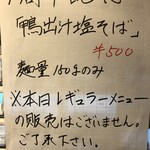 「鴨出汁塩そば」
¥500
麺量150gのみ
※本日レギュラーメニュー
の販売はございません。
ご了承下さい。